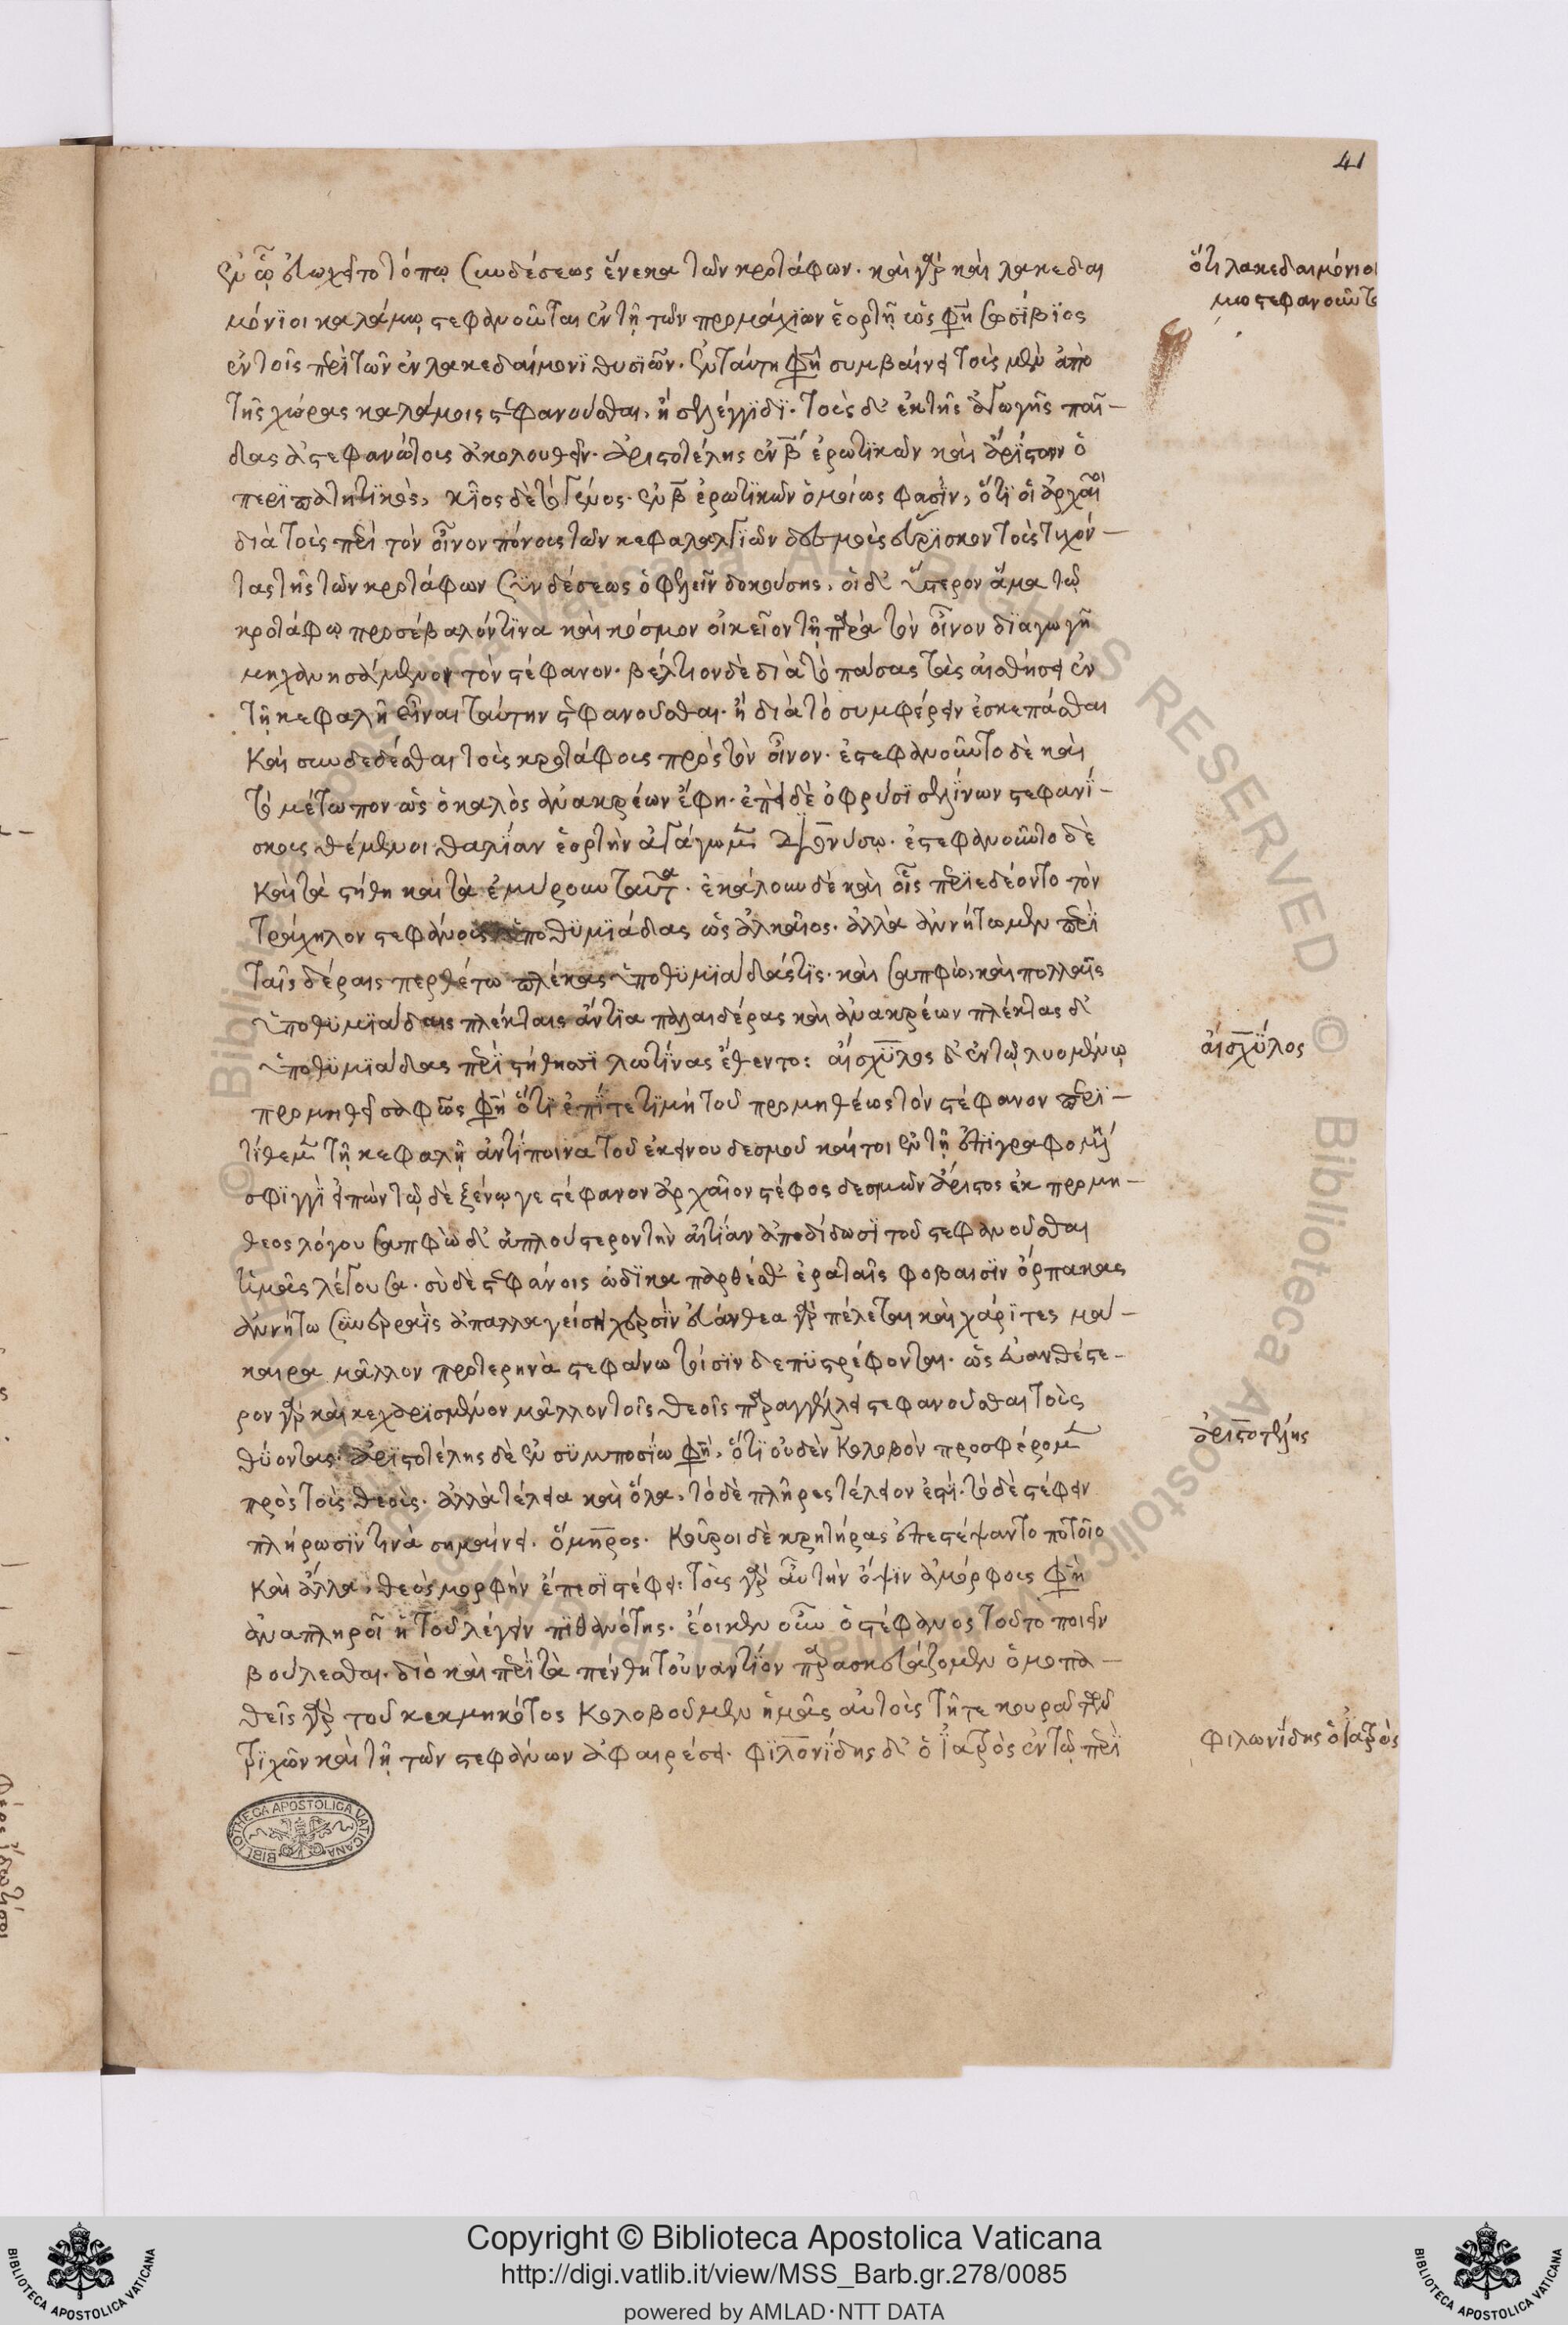 41
ἐν ὧ ἐτύγχανε τόπω συνδέσεως ἕνεκα τῶν κροτάφων. καὶ γὰρ καὶ λακεδαι
μόνϊοι καλάμω στεφανοῦνται ἐν τῆ τῶν προμάχϊων ἑορτῆ ὥς φησι σωσίβϊος
ἐν τοῖς περὶ τῶν ἐν λακεδαίμονϊ θυσϊῶν. ἐν ταύτη φησὶ συμβαίνει τοὺς μὲν ἀπὸ
τῆς χώρας καλάμοις στεφανοῦσθαι, ἢ στλεγγίδϊ. τοὺς δ' ἐκ τῆς ἀγωγῆς παῖ-
δας ἀστεφανώτους ἀκολουθεῖν. ἀριστοτέλης ἐν β ἐρωτϊκῶν καὶ ἀρίστων ὁ
περϊπατητϊκὸς, κῖος δὲ τὸ γένος. ἐν β ἐρωτϊκῶν ὁμοίως φασϊν, ὅτϊ οἱ ἀρχαῖοι
διὰ τοὺς περὶ τὸν οἶνον πόνους τῶν κεφαλαλγϊῶν δεσμοὺς εὕρϊσκον τοὺς τυχόν-
τας τῆς τῶν κροτάφων συνδέσεως ὀφελεῖν δοκούσης, οἱ δ' ὕστερον ἅμα τῶ
κροτάφω προσέβαλόν τϊνα καὶ κόσμον οἰκεῖον τῆ παρὰ τὸν οἶνον δϊαγωγῆ
μηχανησάμενον τὸν στέφανον. βέλτιον δὲ διὰ τὸ πάσας τὰς αἰσθήσεις ἐν
τῆ κεφαλῆ εἶναι ταύτην στεφανοῦσθαι. ἢ διὰ τὸ συμφέρειν ἐσκεπάσθαι
Καὶ συνδεδέσθαι τοὺς κροτάφους πρὸς τὸν οἶνον. ἐστεφανοῦντο δὲ καὶ
τὸ μέτωπον ὡς ὁ καλὸς ἀνακρέων ἔφη. ἐπὶ δὲ ὀφρύσϊ σελίνων στεφανί-
σκους θέμενοι θαλίαν ἑορτὴν ἀγάγωμεν διονύσω. ἐστεφανοῦντο δὲ
Καὶ τὰ στήθη καὶ τὰ ἐμύρουν ταῦτα. ἐκάλουν δὲ καὶ οἷς περϊεδέοντο τὸν
τράχηλον στεφάνους ὑποθϋμϊάδας ὡς ἀλκαῖος. ἀλλὰ ἀννήτω μεν περὶ
ταῖς δέραις περθέτω πλέκας ὑποθϋμϊάδας τϊς. καὶ σαπφὼ, καὶ πολλαῖς
ὑποθϋμϊάδαις πλέκταις ἄντϊα παλαιδέρας καὶ ἀνακρέων πλέκτας δ'
ὑποθϋμϊάδας περὶ στήθησϊ λωτίνας ἔθεντο: αἰσχΰλος δ' ἐν τῶ λυομένω
προμηθεῖ σαφῶς φησὶν ὅτϊ ἐπϊ τετϊμή τοῦ προμηθέως τὸν στέφανον περϊ-
τίθεμεν τῆ κεφαλῆ ἀντίποινα τοῦ ἐκείνου δεσμοῦ καί τοι ἐν τῆ ἐπϊγραφομένη
σφϊγγὶ εἰπὼν τῶ δὲ ξένω γε στέφανον ἀρχαῖον στέφος δεσμῶν ἄριστος ἐκ προμη-
θεος λόγου σαπφὼ δ' ἁπλούστερον τὴν αἰτίαν ἀποδίδωσϊ τοῦ στεφανοῦσθαι
τιμὰς λέγουσα. σὺ δὲ στεφάνοις ὠδϊκα παρθέσθ' ἐραταῖς φοβαισϊν ὄρπακας
ἀννήτω συνερραϊς ἀπαλλαγείση χερσϊν εὐάνθεα γὰρ πέλεται καὶ χάρϊτες μα-
καιρα μᾶλλον προτερηνὰ στεφανωτίσϊν δεπϋστρέφονται. ὡς εὐανθέστε-
ρον γὰρ καὶ κεχαρϊσμένον μᾶλλον τοῖς θεοῖς παραγγέλλει στεφανοῦσθαι τοὺς
θϋοντας. ἀρϊστοτέλης δὲ ἐν σϋμποσίω φησὶν, ὅτϊ οὐδὲν Κολοβὸν προσφέρομεν
πρὸς τοὺς θεοὺς. ἀλλὰ τέλεια καὶ ὅλα, τὸ δὲ πλῆρες τέλειον ἐστι. τὸ δὲ στέφειν
πλήρωσϊν τινὰ σημαίνει. ὅμηρος. Κοῦροι δὲ κρητήρας ἐπεστέψαντο ποτοῖο
Καὶ ἀλλα, θεὸς μορφὴν ἔπεσϊ στέφει: τοὺς γὰρ αὖ τὴν ὄψϊν ἀμόρφους φησὶν
ἀναπληροῖ ἡ τοῦ λέγειν πϊθανότης. ἔοικεν οὖν ὁ στέφανος τοῦτο ποιεῖν
βούλεσθαι. διὸ καὶ περὶ τὰ πένθη τοὐναντίον παρασκευάζομεν ὁμοπα-
θεῖς γὰρ τοῦ κεκμηκότος Κολοβοῦμεν ἡμᾶς αὐτοὺς τῆ τε κουρᾶ τῶν
τρϊχῶν καὶ τῆ τῶν στεφάνων ἀφαιρέσει. φϊλονίδης δ' ὁ ἰατρὸς ἐν τῶ περὶ
ὅτι λακεδαιμόνιοι
στεφανοῦντ
αἰσχΰλος
ἀριστοτέλης
φιλωνίδης ὁ ἰατρὸς
BIBLIOTHECA APOSTOLICA VATICANA
© Biblioteca Apostolica Vaticana ALL RIGHTS RESERVED
Copyright © Biblioteca Apostolica Vaticana
http://digi.vatlib.it/view/MSS_Barb.gr.278/0085
powered by AMLAD·NTT DATA
BIBLIOTECA APOSTOLICA VATICANA
BIBLIOTECA APOSTOLICA VATICANA